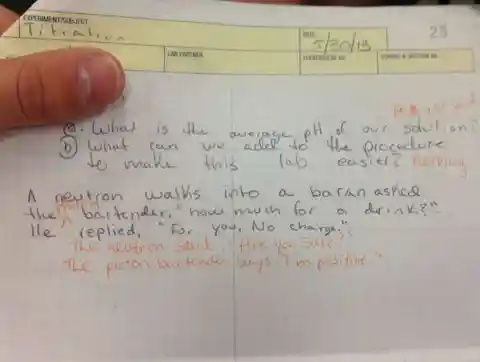 EXPERIMENT/SUBJECT
Titration
DATE
5/30/13
23
LAB PARTNER
a. What is the average pH of our solution?
b) What can we add to the procedure
to make this lab easier? Nothing
A neutron walks into a bar an asked
the bartender, "how much for a drink?"
He replied, "For you, No charge."
The neutron said, "Are you Sure"
the proton bartender says "I'm positive"